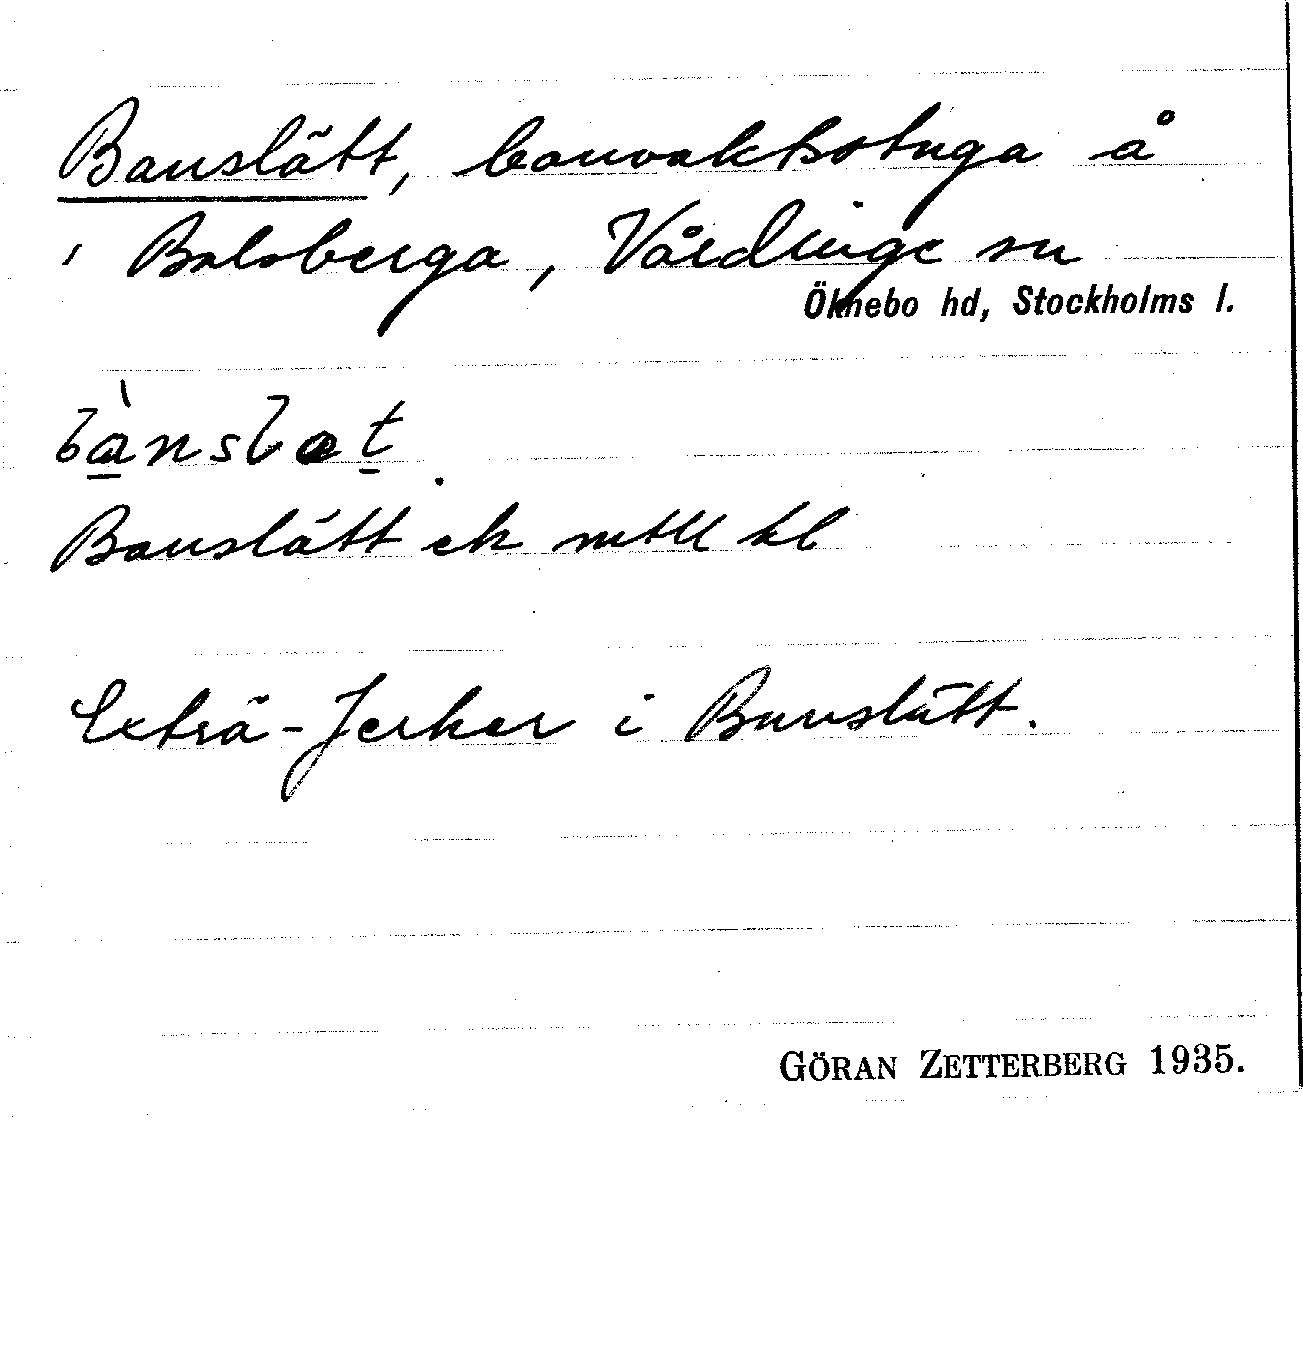 Banslätt, banvaktsstuga å
i Balsberga, Vårdinge sn
Öknebo hd, Stockholms l.
bànslæt.
Banslätt ek mtll kl
Exträ-Jerker i Banslätt.
GÖRAN ZETTERBERG 1935.